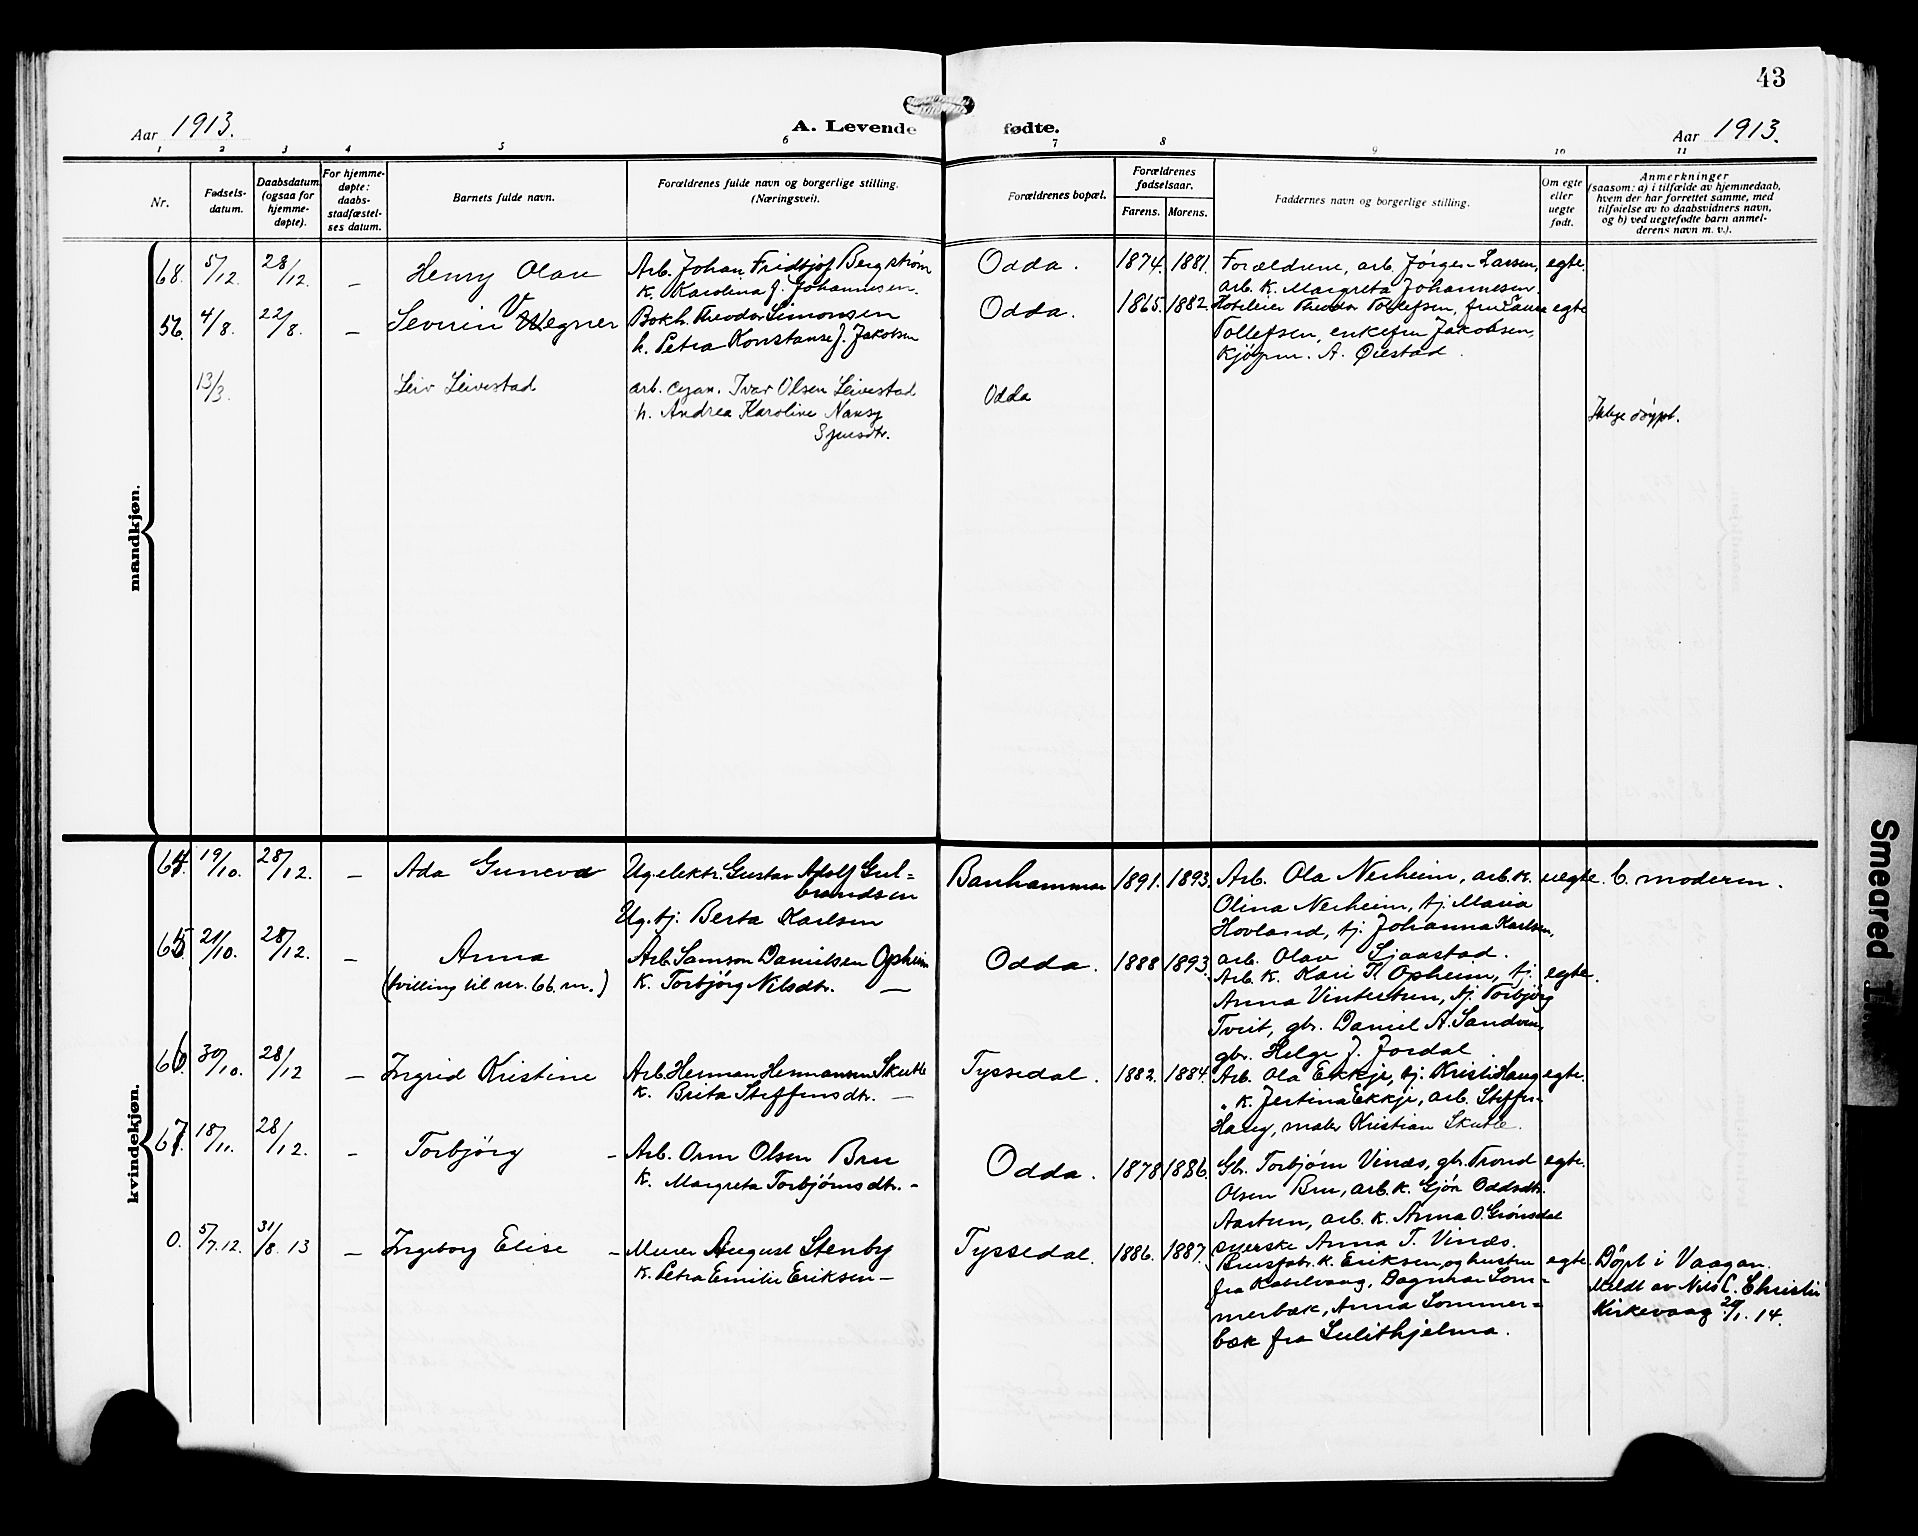 43
Aar 1913.
A. Levende fødte.
Aar 1913.
1 2 3 4 5 6 7 8 9 10 11
Nr.
Fødsels-
datum.
Daabsdatum
(ogsaa for
hjemme-
døpte).
For hjemme-
døpte:
daabs-
stadfæstel-
ses datum.
Barnets fulde navn.
Forældrenes fulde navn og borgerlige stilling.
(Næringsvei).
Forældrenes bopæl.
Forældrenes
fødselsaar.
Farens. Morens.
Faddernes navn og borgerlige stilling.
Om egte
eller
uegte
født.
Anmerkninger
(saasom: a) i tilfælde av hjemmedaab,
hvem der har forrettet samme, med
tilføielse av to daabsvidners navn,
og b) ved uegtefødte barn anmel-
derens navn m. v.).
mandkjøn.
68. 5/12. 28/12. – Henry Olav
Arb. Johan Fridtjof Bergstrøm
K. Karolina J. Johannesen.
Odda. 1874. 1881.
Forældrene, arb. Jørgen Larsen,
arb. K. Margreta Johannesen
egte.
56. 4/8. 22/8. – Severin Wegner
Bokh. Theodor Simonsen
h. Petra Konstanse J. Jakobsen
Odda. 1865. 1882.
Hotelier Theodor Tollefsen, fru Laura
Tollefsen, enkefru Jakobsen,
Kjøpm. A. Øiestad.
egte
13/3. Leiv Leivestad
arb. Ivar Olsen Leivestad
h. Andrea Karoline Nansy
Odda
Ikkje døypt.
kvindekjøn.
64. 19/10. 28/12. – Ada Guneva
Ug. elektr. Gustav Adolf Gul=
brandsen
Ug. tj. Berta Karlsen
1891. 1893.
Arb. Ola Nerheim, arb. k.
Olina Nerheim, tj. Maria
Hovland, tj. Johanna Karlsen,
arb. Olav Sjaastad.
uegte. b. moderen.
65. 21/10. 28/12. – Anna
(tvilling til nr. 66. m.)
Arb. Samson Danielsen Opheim
K. Torbjørg Nilsdtr. —
Odda. 1888 1893.
Arb. K. Kari T. Opheim, tj.
Anna Vintertun, tj. Torbjørg
Tveit, gbr. Daniel A. Sandven,
gbr. Helge J. Jordal
egte.
66. 30/10. 28/12 – Ingrid Kristine
Arb. Herman Hermansen Skutle
K. Brita Steffensdtr. —
Tyssedal. 1882. 1884.
Arb. Ola Ekkje, tj. Kristi Haug
" K. Jertina Ekkje, arb. Steffen
Haug, maler Kristian Skutle.
egte.
67. 18/11. 28/12. – Torbjørg
– Arb. Orm Olsen Bru
K. Margreta Torbjørnsdtr. –
Odda. 1878. 1886.
Gbr. Torbjørn Vinæs, gbr. Trond
Olsen Bru, arb. k. Gjøa Oddsdtr.
Aartun, arb. k. Anna O. Grønsdal
syerske Anna T. Vinæs.
egte.
0. 5/7.12. 31/8.13 – Ingeborg Elise
– Murer August Stenby
K. Petra Emilie Eriksen –
Tyssedal. 1886. 1887.
Brusfabr. K. Eriksen, og hustru
fra Kabelvaag, Dagmar Som=
merbæk, Anna Sommer=
bæk fra Sulithjelma.
egte.
Døpt i Vaagan.
Meldt av Nils C. Christie
Kirkevaag 29/1. 14.
Smeared